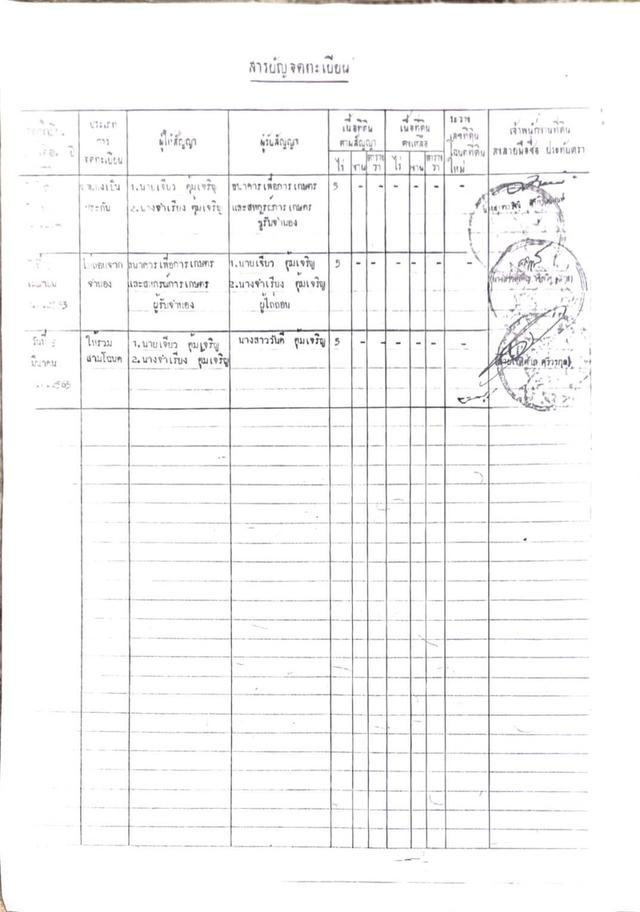 สารบัญจดทะเบียน
ประเภท
การ
จดทะเบียน
ผู้ให้สัญญา
ผู้รับสัญญา
เนื้อที่ดิน
ตามสัญญา
ไร่ งาน ตารางวา
เนื้อที่ดิน
คงเหลือ
ไร่ งาน ตารางวา
ระวาง
เลขที่ดิน
โฉนดที่ดิน
ใหม่
เจ้าพนักงานที่ดิน
ลงลายมือชื่อ ประทับตรา
เป็น
ประกัน
1.นายเจียว คุ้มเจริญ
2.นางจำเรียง คุ้มเจริญ
ธนาคารเพื่อการเกษตร
และสหกรณ์การเกษตร
ผู้รับจำนอง
5 - - - - - -
ไถ่ถอนจาก
จำนอง
ธนาคารเพื่อการเกษตร
และสหกรณ์การเกษตร
ผู้รับจำนอง
1.นายเจียว คุ้มเจริญ
2.นางจำเรียง คุ้มเจริญ
ผู้ไถ่ถอน
5 - - - - - -
วันที่
มีนาคม
ให้รวม
สามโฉนด
1.นายเจียว คุ้มเจริญ
2.นางจำเรียง คุ้มเจริญ
นางสาววันดี คุ้มเจริญ
5 - - - - - -